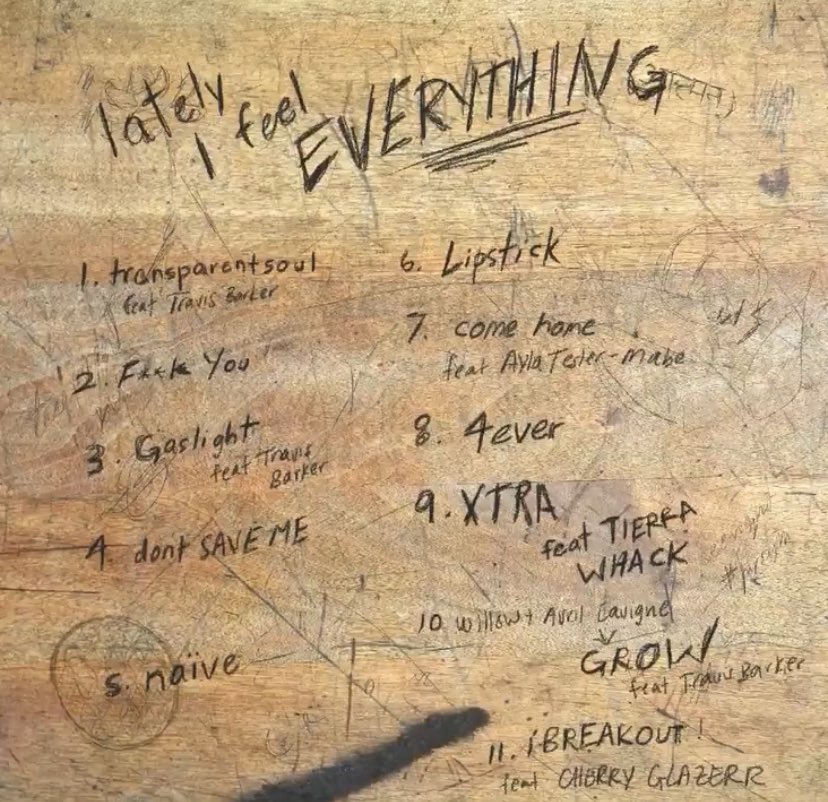 lately
I feel
EVERYTHING
1. transparentsoul
feat Travis Barker
2. F**k You
3. Gaslight
feat Travis
Barker
4. dont SAVE ME
5. naïve
6. Lipstick
7. come home
feat Ayla Tesler-Mabe
8. 4ever
9. XTRA
feat TIERRA
WHACK
10 Willow + Avril Lavigne
GROW
feat Travis Barker
11. ¡BREAKOUT!
feat CHERRY GLAZERR